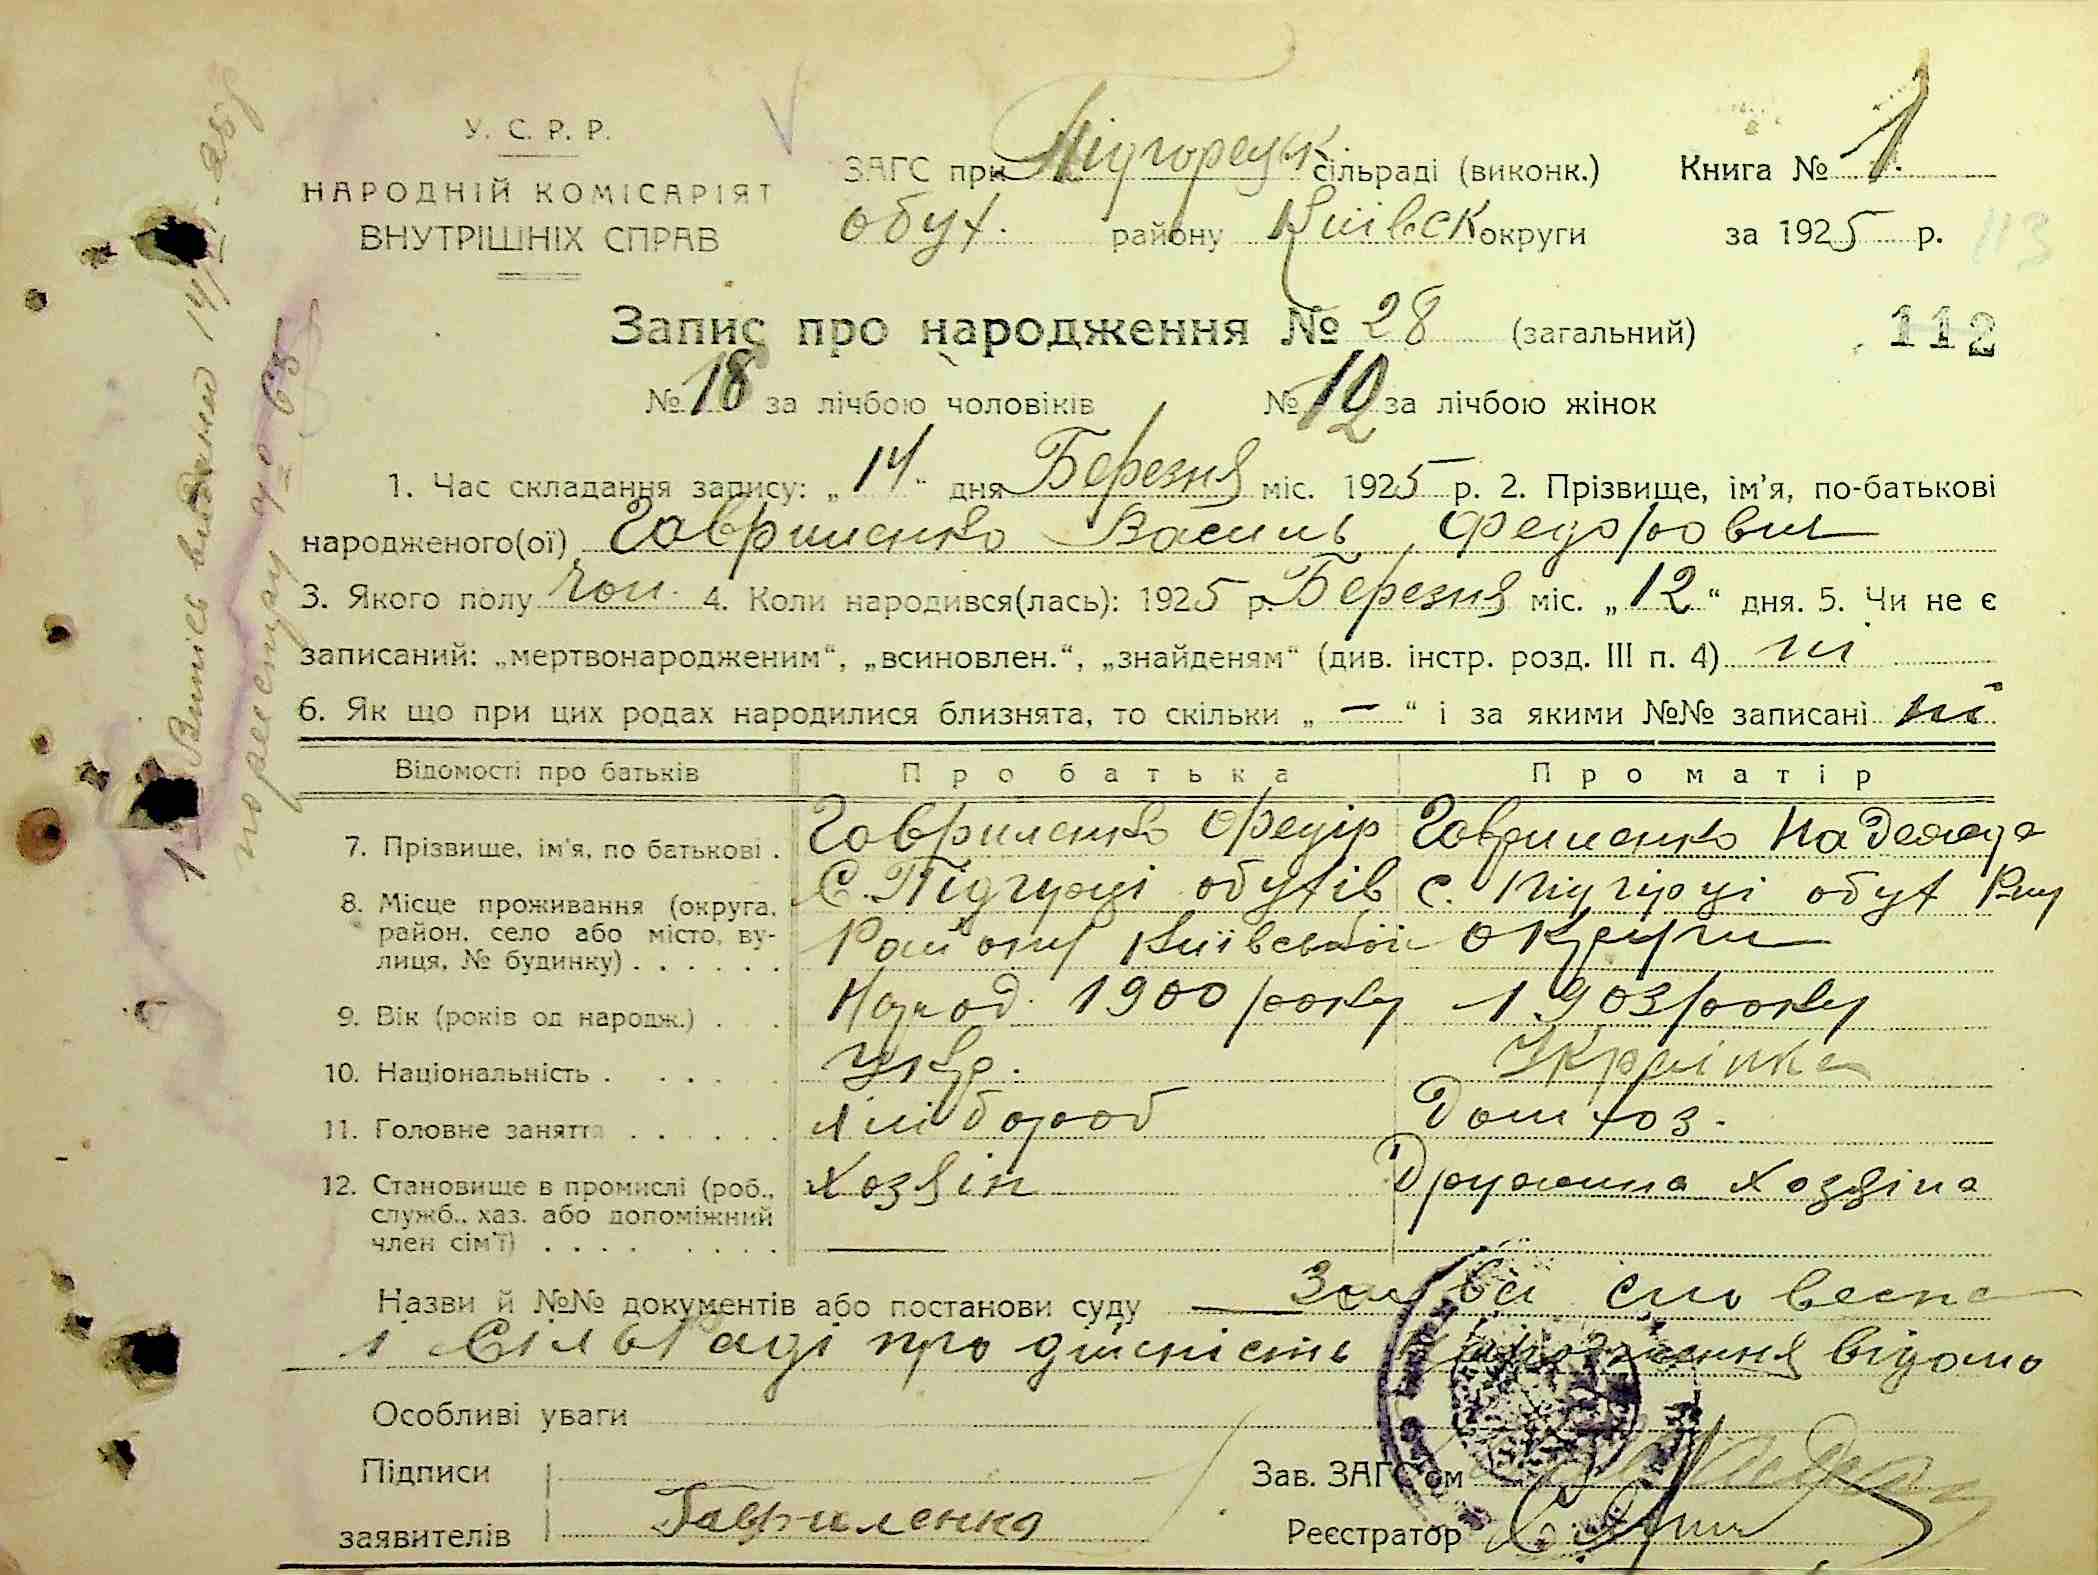 У. С. Р. Р.
НАРОДНІЙ КОМІСАРІЯТ
ВНУТРІШНІХ СПРАВ
ЗАГС при Підгорецьк. сільраді (виконк.) Книга № 1
обух. району Київськ округи за 1925 р.
113
Запис про народження № 28 (загальний)
112
№ 18 за лічбою чоловіків № 10 за лічбою жінок
1. Час складання запису: „14" дня Березня міс. 1925 р. 2. Прізвище, ім'я, по-батькові
народженого(ої) Гавриленко Василь Федорович
3. Якого полу Чол. 4. Коли народився(лась): 1925 р. Березня міс. „12" дня. 5. Чи не є
записаний: „мертвонародженим", „всиновлен.", „знайденям" (див. інстр. розд. III п. 4) ні
6. Як що при цих родах народилися близнята, то скільки „—" і за якими №№ записані ні
Відомості про батьків Про батька Про матір
7. Прізвище, ім'я, по батькові . Гавриленко Федір Гавриленко Надежда
8. Місце проживання (округа, район, село або місто, вулиця, № будинку) . . . . . .
С. Підгірці обухів с. Підгірці обух
Району Київської округи
9. Вік (років од народж.) . . . Народ. 1900 року 1903 року
10. Національність . . . . Укр. Українка
11. Головне заняття . . . . . . Хлібороб Дом хоз.
12. Становище в промислі (роб., служб., хаз. або допоміжний член сім'ї) . . . . . . . .
Хозяїн Дружина хозяїна
Назви й №№ документів або постанови суду Заява словесна
і Сільраді про дійсність народження відомо
Особливі уваги
Підписи
заявителів Гавриленко
Зав. ЗАГС'ом
Реєстратор
Випись видана
по реєстру